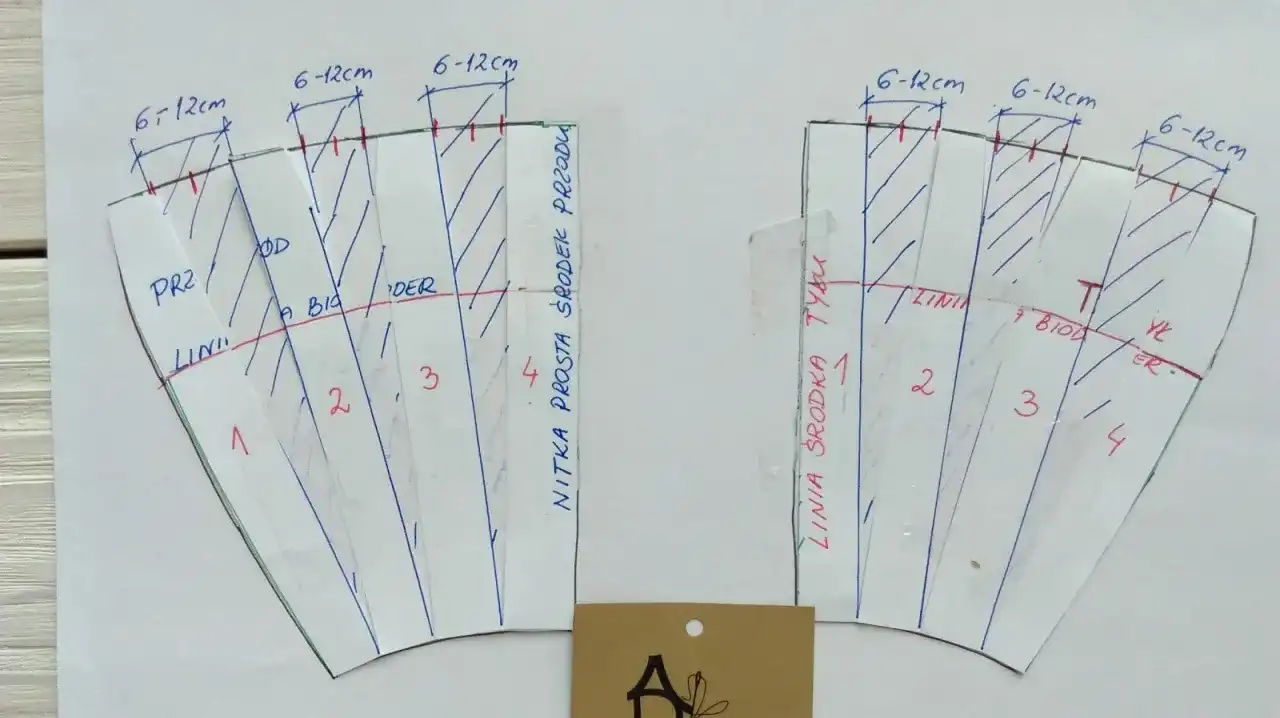 6-12cm
6-12cm
6-12cm
PRZ
ØD
LINII
A BIO
DER
1
2
3
4
NITKA PROSTA ŚRODEK PRZODU
6-12cm
6-12cm
6-12cm
LINIA ŚRODKA TYŁU
T
YŁ
LINII
BIOD
ER
1
2
3
4
A